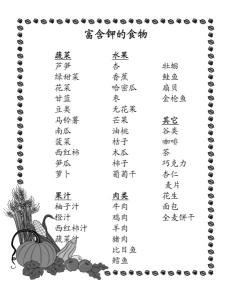 富含钾的食物
蔬菜
芦笋
绿甜菜
花菜
甘蓝
豆类
马铃薯
南瓜
菠菜
西红柿
笋瓜
萝卜
水果
杏
香蕉
哈密瓜
枣
无花果
芒果
油桃
桔子
木瓜
柿子
葡萄干
牡蛎
鲑鱼
扇贝
金枪鱼
其它
谷类
咖啡
茶
巧克力
杏仁
麦片
花生
面包
全麦饼干
果汁
柚子汁
橙汁
西红柿汁
蔬菜汁
肉类
牛肉
鸡肉
羊肉
猪肉
比目鱼
鳕鱼